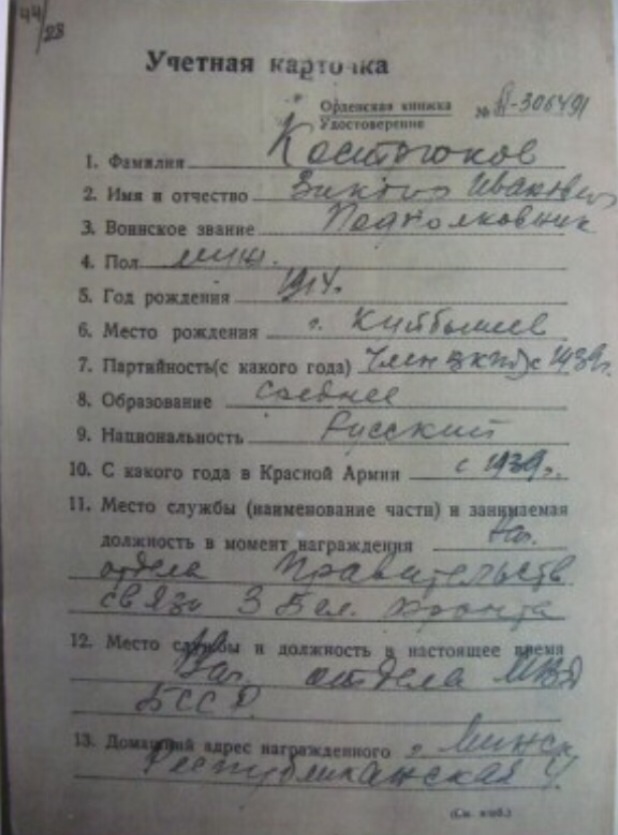 44/28
Учетная карточка
Орденская книжка
Удостоверение № А-306491
1. Фамилия Костюков
2. Имя и отчество Виктор Иванович
3. Воинское звание Подполковник
4. Пол муж.
5. Год рождения 1914.
6. Место рождения г. Куйбышев
7. Партийность(с какого года) Член ВКП(б) с 1939г.
8. Образование Среднее
9. Национальность Русский
10. С какого года в Красной Армии с 1939г.
11. Место службы (наименование части) и занимаемая
должность в момент награждения Нач.
отдела Правительств.
связи 3 Бел. фронта
12. Место службы и должность в настоящее время
Нач. отдела МВД
БССР.
13. Домашний адрес награжденного г. Минск
Республиканская
(См. н/об.)